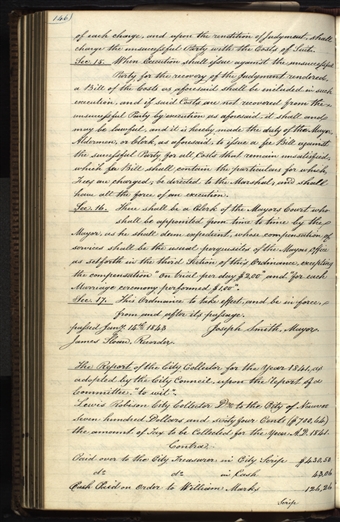 146
of each charge, and upon the rendition of Judgment, shall
charge the unsuccessful Party with the Costs of Suit.
Sec. 15. When Execution shall issue against the unsuccessful
Party for the recovery of the Judgment rendered,
a Bill of the Costs as aforesaid shall be included in such
execution, and if said Costs are not recovered from the
unsuccessful Party by execution as aforesaid, it shall and
may be lawful, and it is hereby made the duty of the Mayor,
Aldermen, or Clerk, as aforesaid, to issue a fee Bill against
the successful Party for all Costs that remain unsatisfied,
which fee Bill shall contain the particulars for which,
Fees are charged, be directed to the Marshal, and shall
have all the force of an execution.
Sec. 16. There shall be a Clerk of the Mayors Court who
shall be appointed from time to time by the
Mayor, as he shall deem expedient, whose compensation of
services shall be the usual perquisites of the Mayors office
as setforth in the third Section of this Ordinance, excepting
the compensation "on trial per day $2,00" and "for each
Marriage ceremony performed $1,00".
Sec. 17. This Ordinance to take effect, and be in force,
from and after its passage.
passed Jany. 14th 1843 Joseph Smith, Mayor,
James Sloan, Recorder.
The Report of the City Collector for the Year 1841, as
adopted by the City Council, upon the Report of a
Committee, "to wit".
Lewis Robison City Collector Dr. to the City of Nauvoo
Seven hundred Dollars and sixty four Cents ($700,64)
the amount of Tax to be Collected for the Year A.D. 1841.
Contra.
Paid over to the City Treasurer in City Scrip $430.50
do do in Cash 43,06
Cash Paid on Order to William Marks 126,26
Scrip